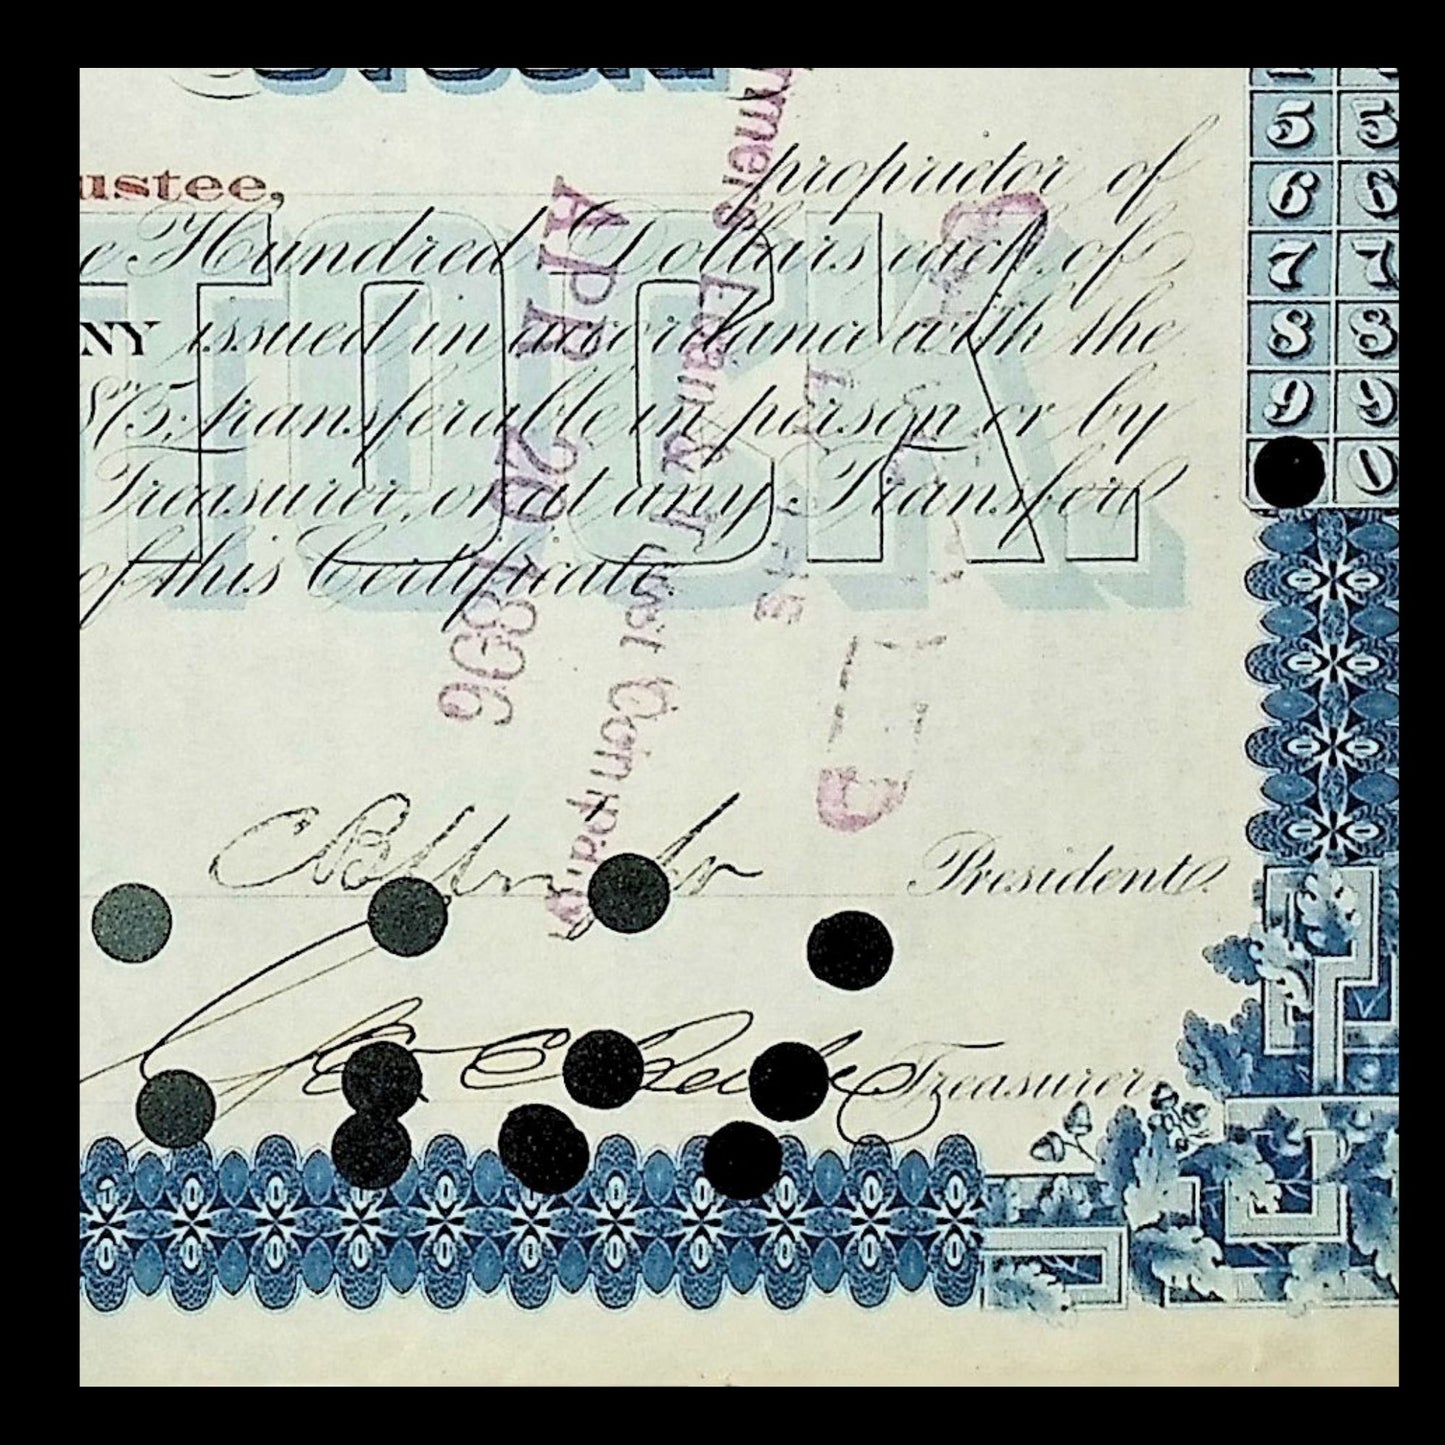 ustee, proprietor of
e Hundred Dollars each, of
NY issued in accordance with the
1875; transferable in person or by
Treasurer, or at any Transfer
of this Certificate
STOCK
APR 20 1896
rmers Loan & Trust Company
President.
Treasurer.
5 5
6 6
7 7
8 8
9 9
0